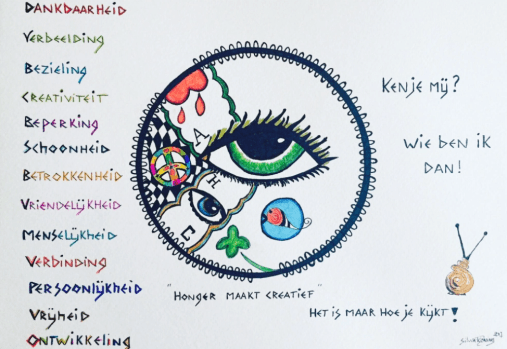 Dankbaarheid
Verbeelding
Bezieling
Creativiteit
Beperking
Schoonheid
Betrokkenheid
Vriendelijkheid
Menselijkheid
Verbinding
Persoonlijkheid
Vrijheid
Ontwikkeling
A
H
C
"Honger maakt creatief"
Ken je mij?
Wie ben ik
dan!
Het is maar hoe je kijkt!